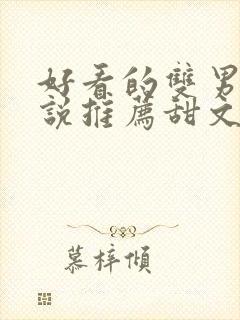 好看的雙男
說推薦甜文
慕梓傾